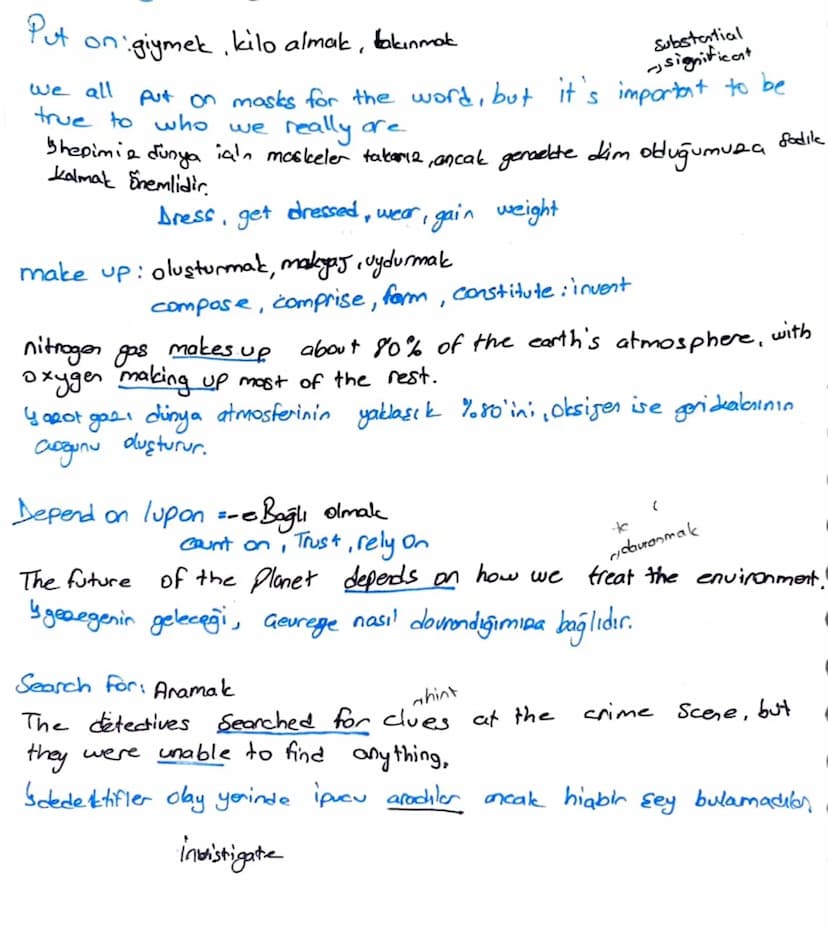 Put on: giymek, kilo almak, takınmak
substantial
→ significant
we all put on masks for the word, but it's important to be
true to who we really are
↳ hepimiz dünya için maskeler takarız, ancak gerçekte kim olduğumuza sadık
kalmak önemlidir.
Dress, get dressed, wear, gain weight
make up: oluşturmak, makyaj, uydurmak
compose, comprise, form, constitute: invent
nitrogen gas makes up about 80% of the earth's atmosphere, with
oxygen making up most of the rest.
↳ azot gazı dünya atmosferinin yaklaşık %80'ini, oksijen ise geri kalanının
çoğunu oluşturur.
Depend on /upon = Bağlı olmak
count on, Trust, rely on
davranmak
The future of the Planet depends on how we treat the environment.
↳ gezegenin geleceği, çevreye nasıl davrandığımıza bağlıdır.
Search for: Aramak
hint
The detectives searched for clues at the crime scene, but
they were unable to find anything.
↳ dedektifler olay yerinde ipucu aradılar ancak hiçbir şey bulamadılar.
invistigate